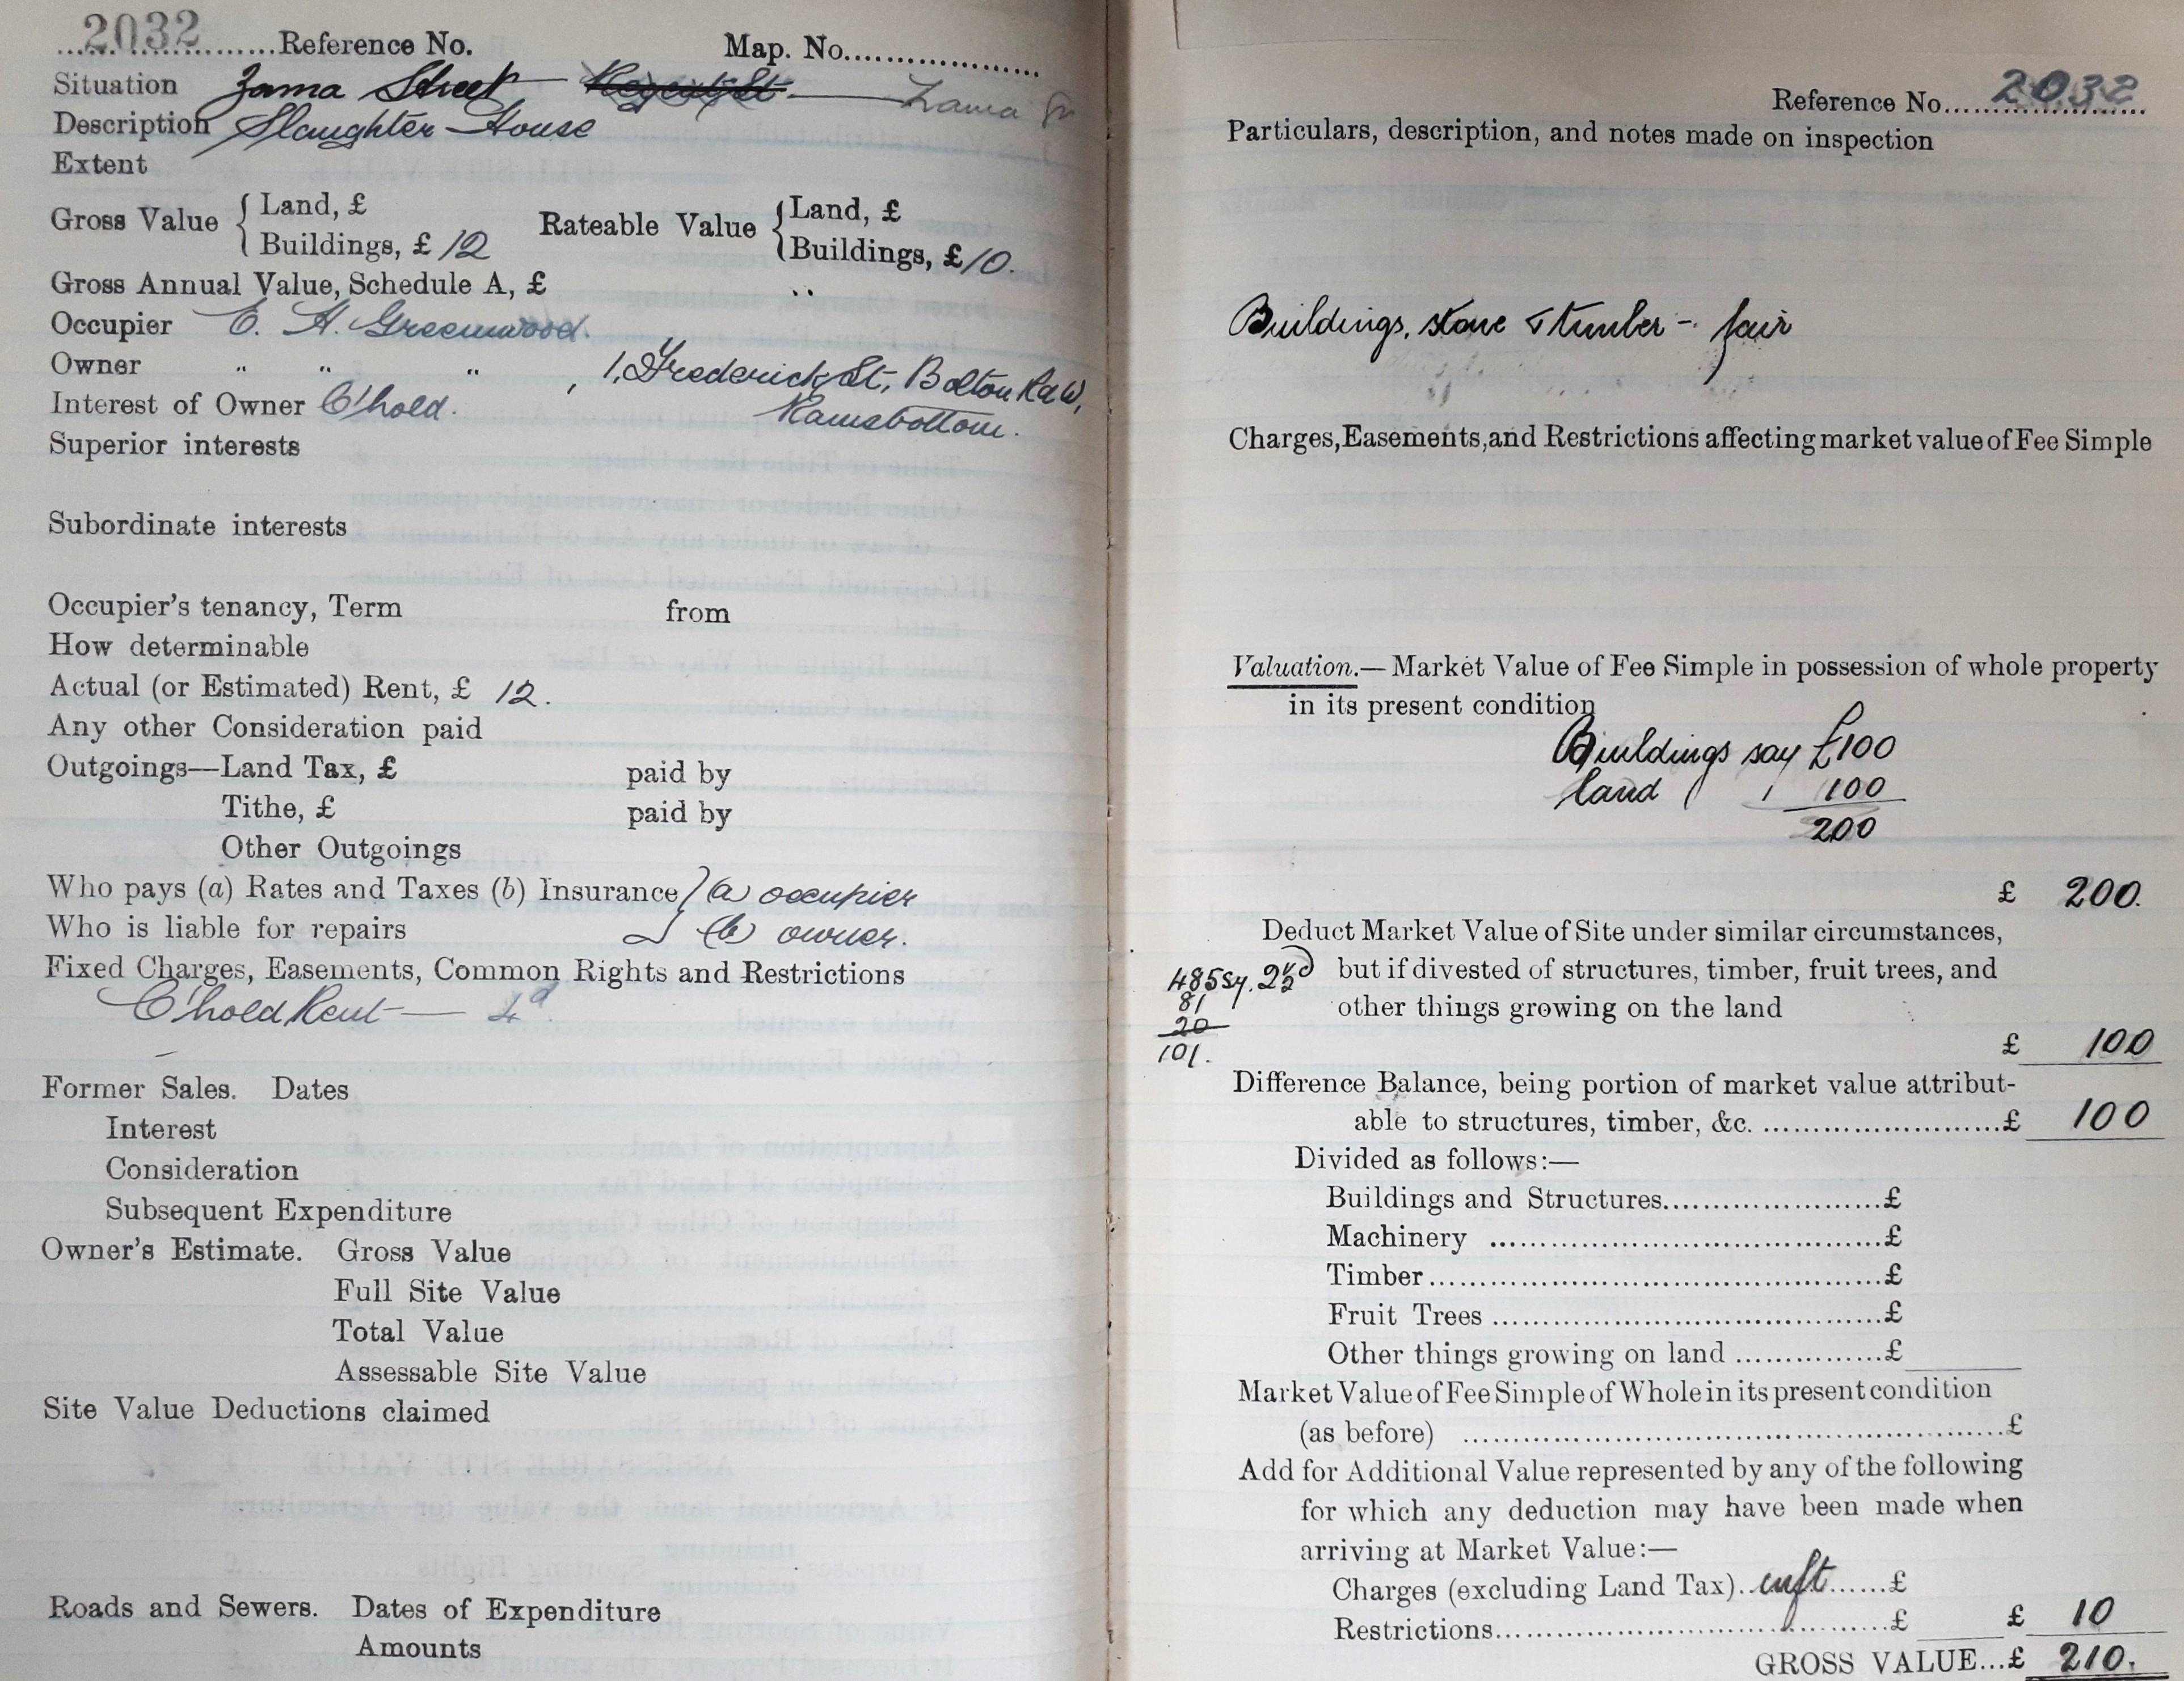 2032 Reference No. Map. No.
Situation Zama Street Regent St. Zama St
Description Slaughter House
Extent
Gross Value { Land, £ Rateable Value { Land, £
Buildings, £ 12 Buildings, £ 10.
Gross Annual Value, Schedule A, £ "
Occupier E. H. Greenwood.
Owner " " " , 1, Frederick St, Bolton Rd W,
Interest of Owner C'hold. Ramsbottom.
Superior interests
Subordinate interests
Occupier's tenancy, Term from
How determinable
Actual (or Estimated) Rent, £ 12.
Any other Consideration paid
Outgoings—Land Tax, £ paid by
Tithe, £ paid by
Other Outgoings
Who pays (a) Rates and Taxes (b) Insurance } (a) occupier
Who is liable for repairs (b) owner.
Fixed Charges, Easements, Common Rights and Restrictions
C'hold Rent — 4d
Former Sales. Dates
Interest
Consideration
Subsequent Expenditure
Owner's Estimate. Gross Value
Full Site Value
Total Value
Assessable Site Value
Site Value Deductions claimed
Roads and Sewers. Dates of Expenditure
Amounts
Reference No. 2032
Particulars, description, and notes made on inspection
Buildings, stone & timber - fair
Charges, Easements, and Restrictions affecting market value of Fee Simple
Valuation.—Market Value of Fee Simple in possession of whole property
in its present condition
Buildings say £100
land 100
200
£ 200.
Deduct Market Value of Site under similar circumstances,
485 sy. but if divested of structures, timber, fruit trees, and
81 other things growing on the land
20
101. £ 100
Difference Balance, being portion of market value attribut-
able to structures, timber, &c. £ 100
Divided as follows:—
Buildings and Structures £
Machinery £
Timber £
Fruit Trees £
Other things growing on land £
Market Value of Fee Simple of Whole in its present condition
(as before) £
Add for Additional Value represented by any of the following
for which any deduction may have been made when
arriving at Market Value:—
Charges (excluding Land Tax) £
Restrictions £ £ 10
GROSS VALUE...£ 210.